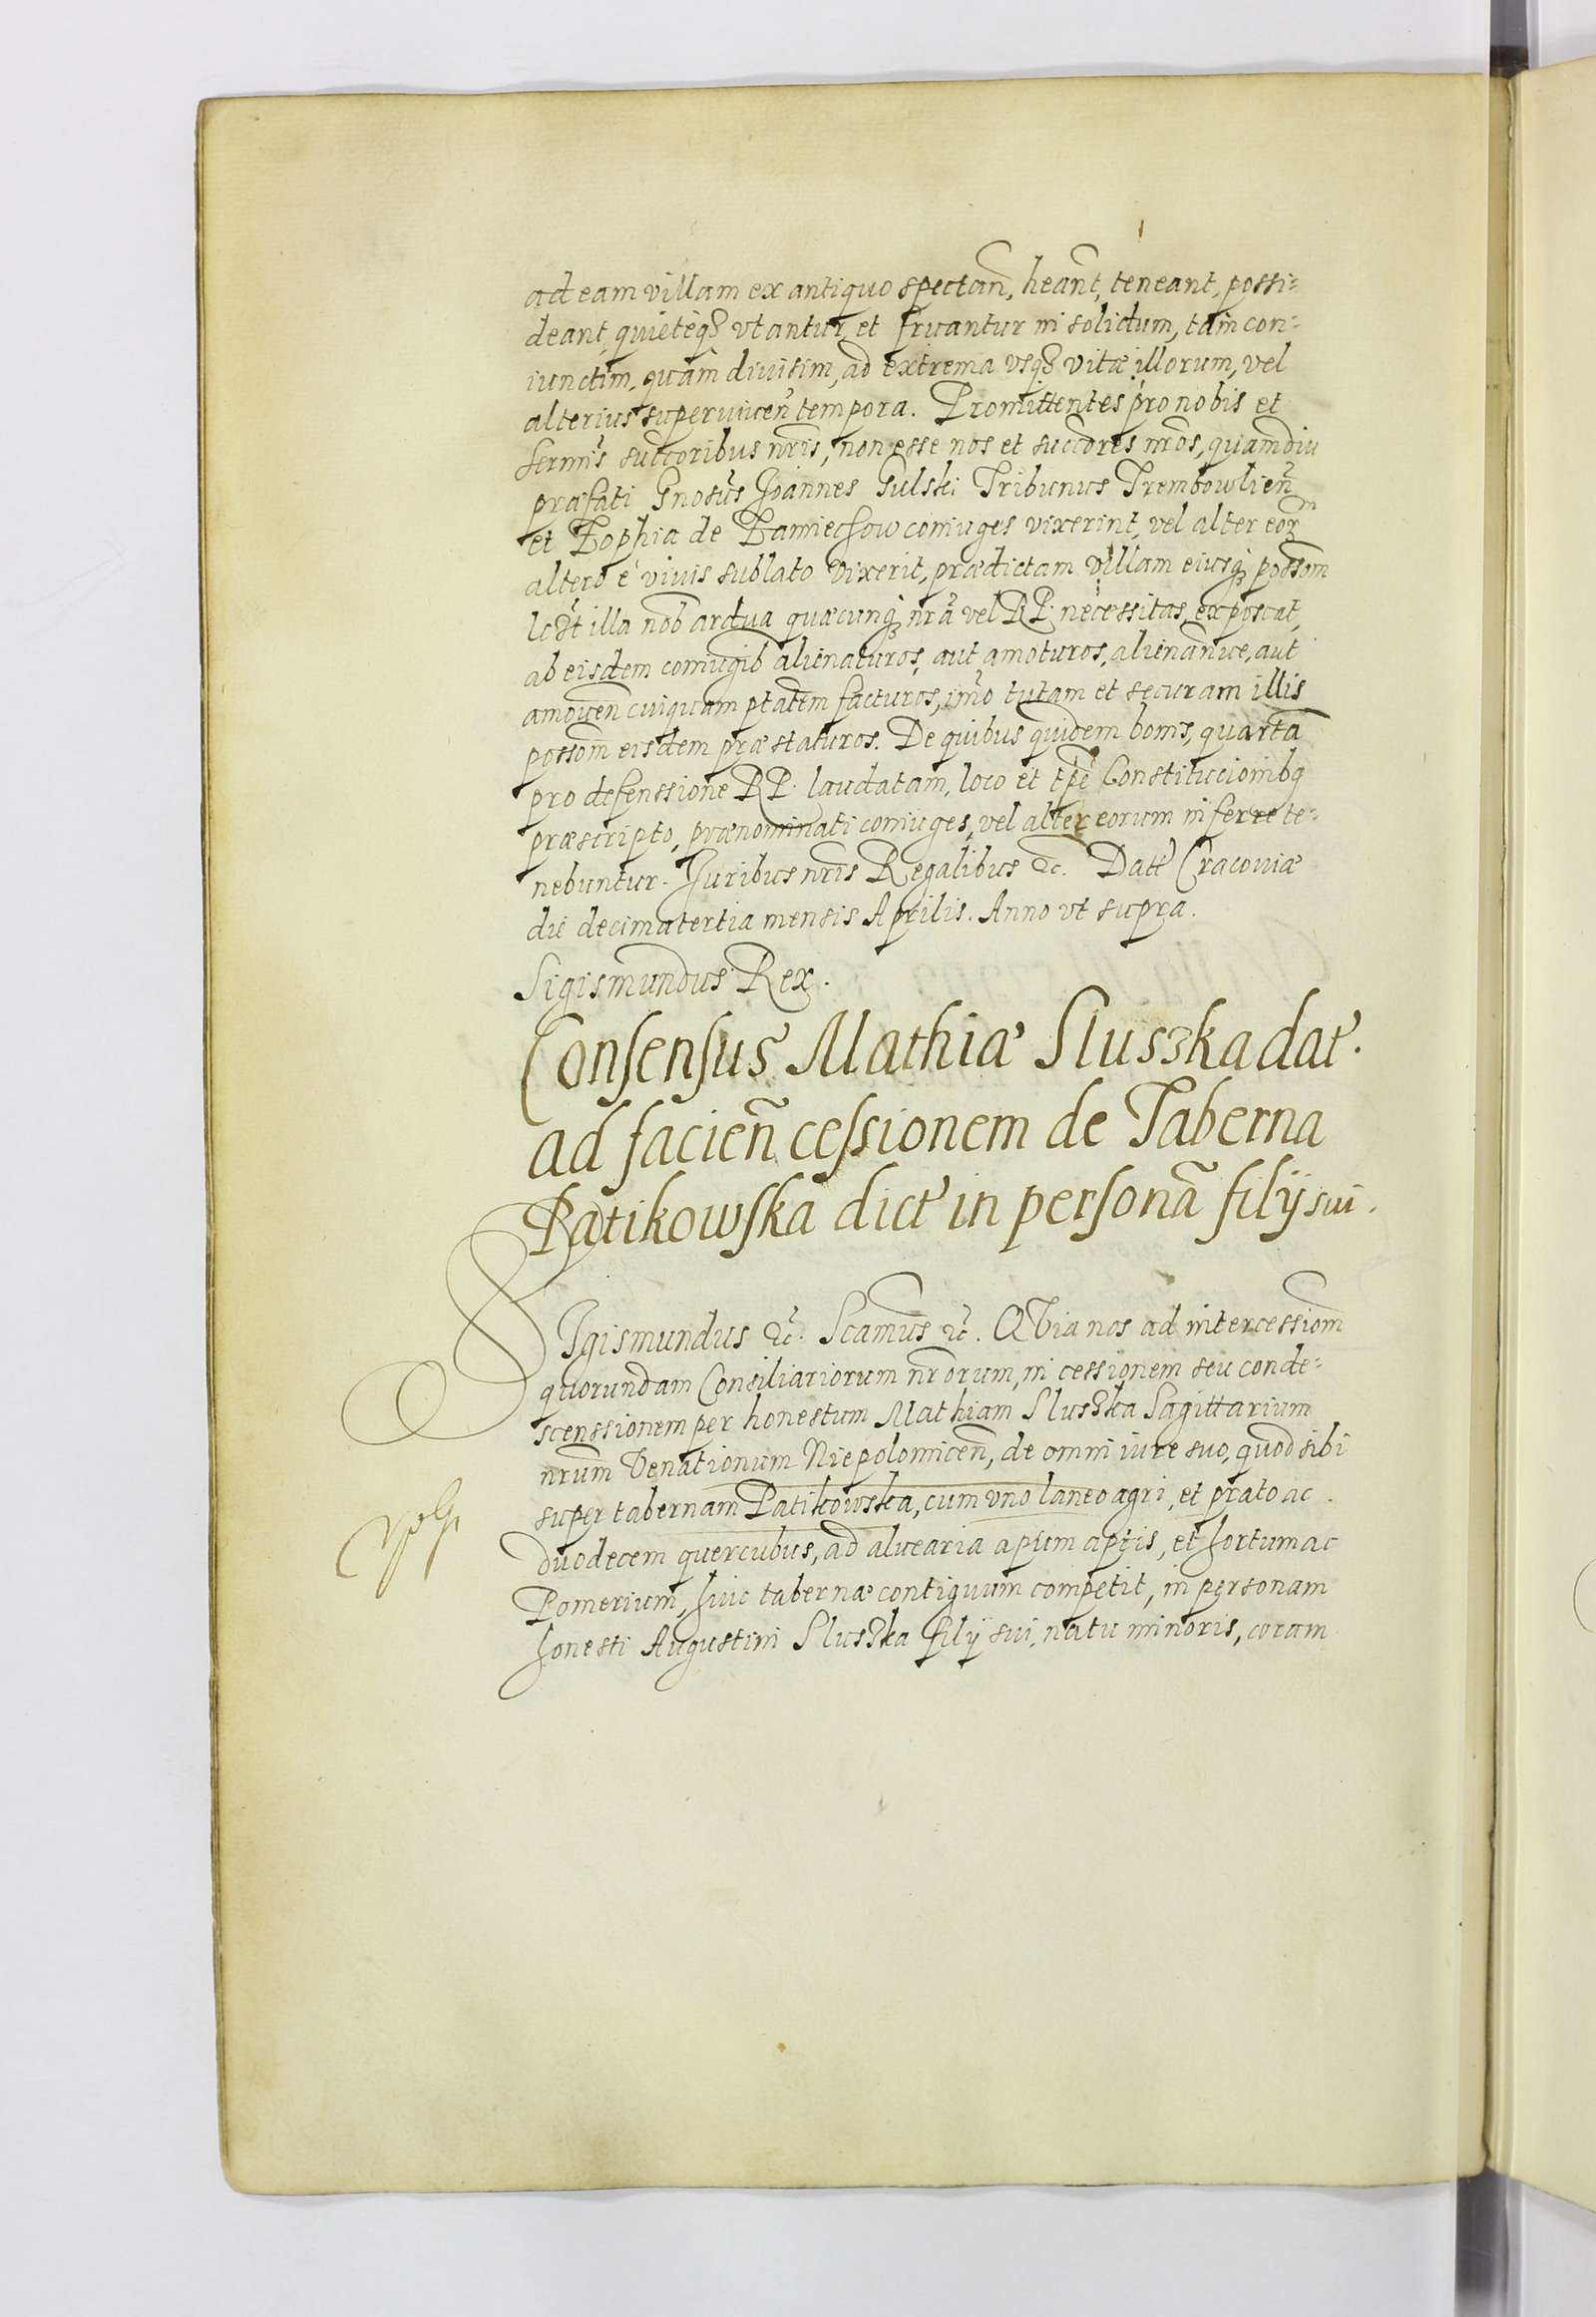 ad eam villam ex antiquo spectan̄, heant, teneant, possi=
deant, quietèq3 vtantur et fruantur in solidum, tam con=
iunctim, quàm diuisim, ad extrema vsq3 vitæ illorum, vel
alterius superuiuen̄ tempora. Promittentes pro nobis et
sermis succoribus nr̄is, non esse nos et succores nr̄os, quamdiu
præfati Gnosus Joannes Gulski Tribunus Trembowlien̄
et Zophia de Zamiechow coniuges vixerint, vel alter eor̄m
altero è viuis sublato vixerit, prædictam villam eiusq3 possom̄
lc̄et illa nob ardua quæcunq3 nr̄a vel RP. necessitas exposcat,
ab eisdem coniugib alienaturos, aut amoturos, alienan̄ue, aut
amouen̄ cuiquam ptatem facturos, imo tutam et securam illis
possom̄ eisdem præstaturos. De quibus quidem bonis, quarta
pro defenssione RP. laudatam, loco et tp̄e Constitucionibq
præscripto, prænominati coniuges, vel alter eorum inferre te=
nebuntur. Juribus nr̄is Regalibus &c. Dat Cracouiæ
die decimatertia mensis Aprilis. Anno vt supra.
Sigismundus Rex.
Consensus Mathiæ Sluszka dat.
ad facien̄ cessionem de Taberna
Patikowska dict in personā filij sui.
SIgismundus &c. Scamus &c. QVia nos ad intercessiom̄
quorundam Consiliariorum nr̄orum, in cessionem seu conde=
scenssionem per honestum Mathiam Sluszka Sagittarium
nr̄um Venationum Niepolomicen̄, de omni iure suo, quod sibi
super tabernam Patikowska, cum vno laneo agri, et prato ac
duodecem quercubus, ad aluearia apum aptis, et hortum ac
Pomerium, huic tabernæ contiguum competit, in personam
honesti Augustini Sluszka filij sui, natu minoris, coram